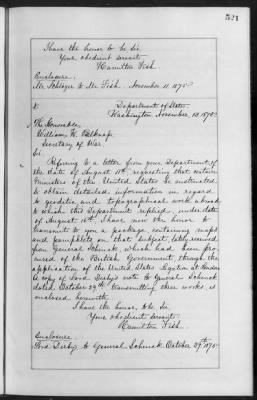 521
I have the honor to be Sir
Your obedient servant
Hamilton Fish.
Enclosure.
Mr. Schlozer to Mr. Fish. November 11, 1875
Department of State
Washington November 13, 1875.
The Honorable,
William W. Belknap
Secretary of War.
Sir
Referring to a letter from your Department of
the date of August 11th, requesting that certain
Ministers of the United States be instructed
to obtain detailed information in regard
to geodetic and topographical work abroad
to which this Department replied, under date
of August 16th, I have now the honor to
transmit to you a package containing maps
and pamphlets on that subject lately received
from General Schenck, which had been pro-
cured of the British Government through the
application of the United States Legation at London
A copy of Lord Derby's note to General Schenck
dated October 29th transmitting these works, is
enclosed herewith.
I have the honor, to be Sir
Your obedient servant
Hamilton Fish.
Enclosure.
Lord Derby to General Schenck October 29th 1875